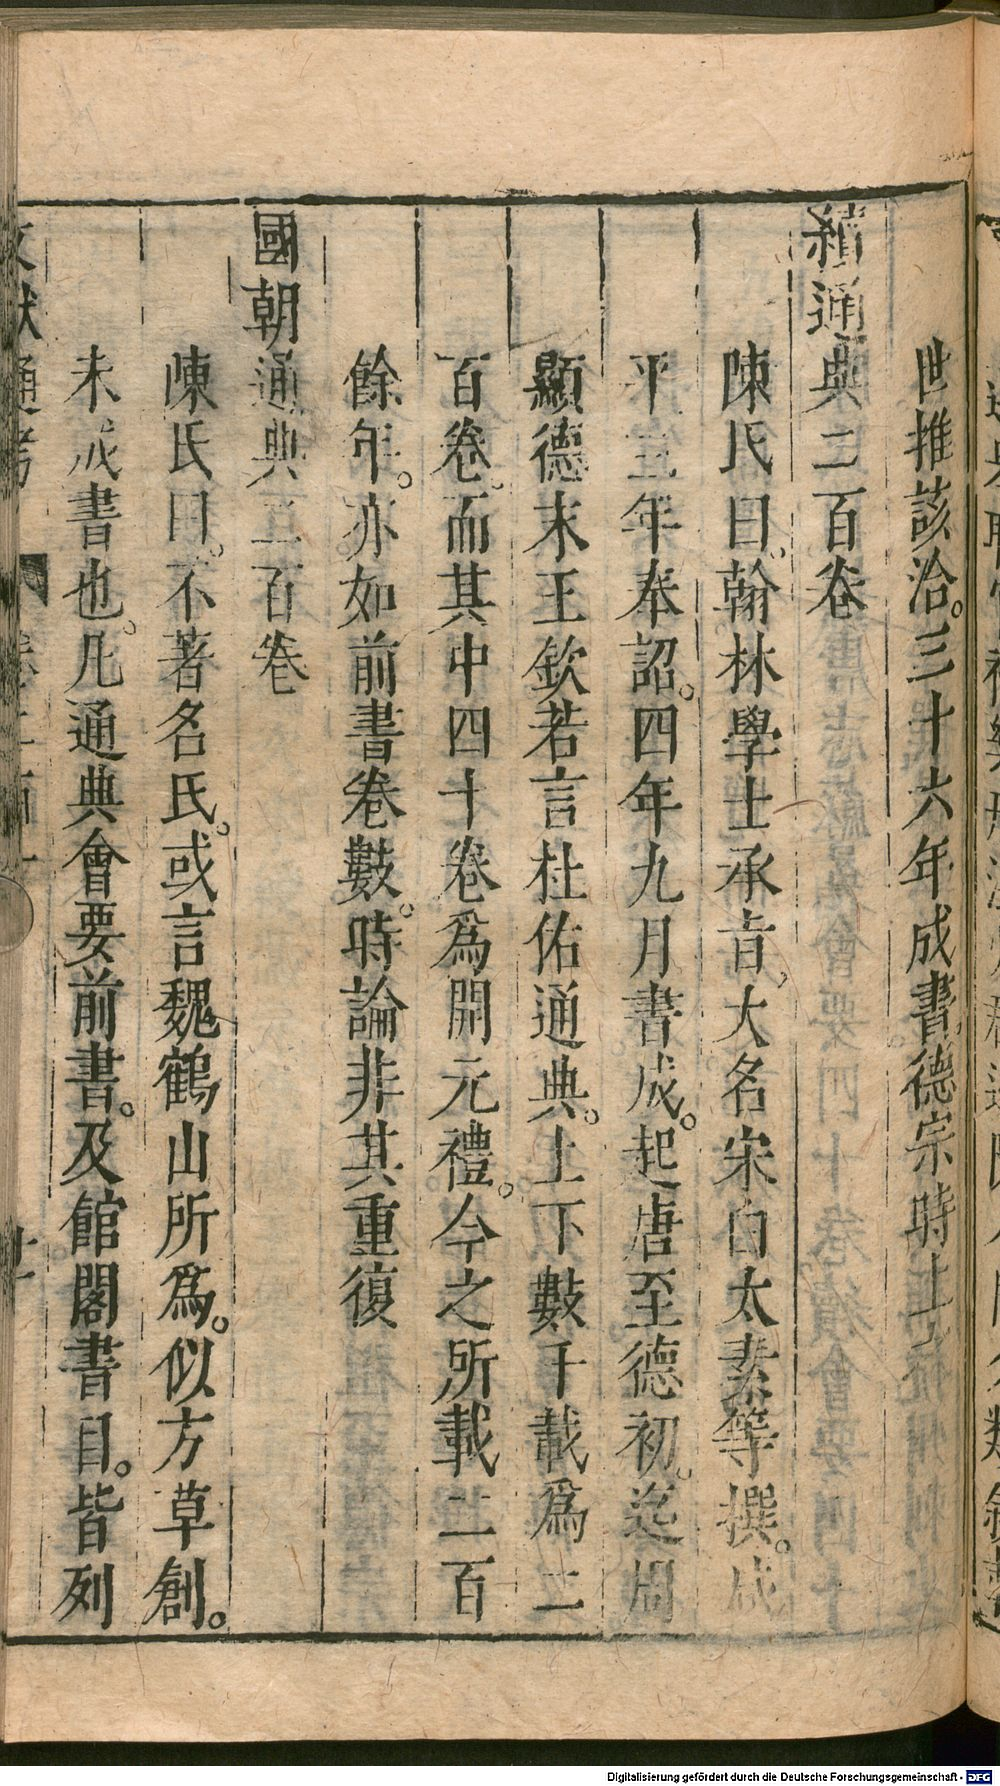 世推該洽。三十六年成書。德宗時上之
續通典二百卷
陳氏曰。翰林學士承旨、大名宋白太素等撰。咸
平三年奉詔。四年九月書成。起唐至德初。迄周
顯德末王欽若言杜佑通典。上下數千載爲二
百卷。而其中四十卷爲開元禮。今之所載二百
餘年。亦如前書卷數。時論非其重復
國朝通典二百卷
陳氏曰。不著名氏。或言魏鶴山所爲。似方草創。
未成書也。凡通典會要前書。及館閣書目。皆列
文獻通考
Digitalisierung gefördert durch die Deutsche Forschungsgemeinschaft - DFG